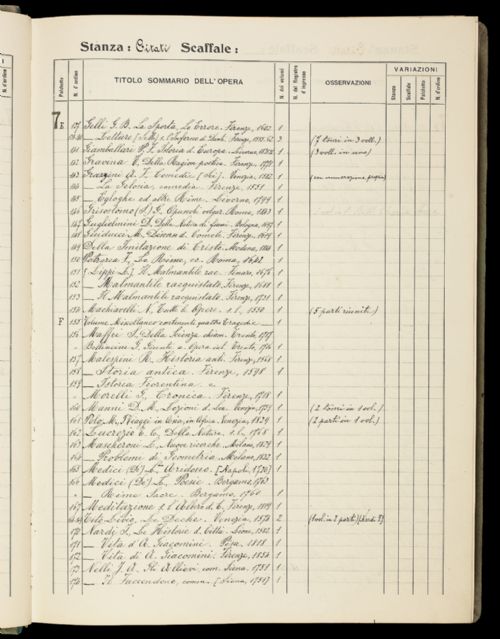 Stanza: Citati Scaffale:
Palchetto
N. d'ordine
TITOLO SOMMARIO DELL'OPERA
N. dei volumi
N. del Registro d'ingresso
OSSERVAZIONI
VARIAZIONI
Stanza
Scaffale
Palchetto
N. d'ordine
7 E 137 Gelli G. B. La Sporta, Lo Errore. Firenze, 1 1
Letture 3 (7 tomi in 3 voll.)
141 Giambullari P. F. Storia d. Europa. Livorno, 1 (3 voll. in uno)
142 Gravina V. Della Ragion poetica. Firenze, 1771 1
143 Grazzini A. F. Comedie Venezia, 1582 1
144 — La Gelosia, comedia. Firenze, 1551 1
145 — Egloghe ed altre Rime. Livorno, 1799 1
146 Grisostomo (S.) G. Opuscoli volgar. Roma, 1843 1
147 Guglielmini D. Della Natura di fiumi. Bologna, 1697 1
148 Guiducci M. Discorso d. Comete. Firenze, 1619 1
149 Della Imitazione di Cristo. Modena, 1
150 Petrarca F. Le Rime, ec. Roma, 1642 1
151 [Lippi L.] Il Malmantile rac. Finaro, 1676 1
152 — Malmantile racquistato. Firenze, 1688 1
153 — Il Malmantile racquistato. Firenze, 1731 1
154 Machiavelli N. Tutte le Opere. s. l., 1550 1 (5 parti riunite)
F 155 Volume Miscellaneo contenente quattro Tragedie
156 Maffei S. Della Scienza chiam. Trento, 1717
157 Malespini R. Historia anti. Firenze, 1568 1
158 — Storia antica. Firenze, 1598 1
159 — Istoria Fiorentina e
" Morelli G. Cronaca. Firenze, 1718 1
160 Manni D. M. Lezioni d. Ling. Venezia, 1 (2 tomi in 1 vol.)
161 Polo M. Viaggi in Venezia, 1829 1 (2 parti in 1 vol.)
162 Lucrezio C. T. Della Natura. s. l., 1768 1
163 Mascheroni L. Nuove ricerche. Milano, 1829 1
164 — Problemi di Geometria. Milano, 1832 1
165 Medici (De) L. Aridosio. [Napoli, 1720] 1
166 Medici (De) L. Poesie. Bergamo, 1763
" — Rime Sacre. Bergamo, 1760 1
167 Meditazione s. l'Albero d. C. Firenze, 1
Tito Livio, Le Deche. Venezia, 2
170 Nardi J. Le Historie d. Città. Lione, 1582 1
171 — Vita d'A. Giacomini. Pisa, 1818 1
172 — Vita di A. Giacomini. Firenze, 1
173 Nelli J. A. Gli Allievi, com. Siena, 1751 1
174 — Il Faccendone, comm. [Siena, 1751] 1